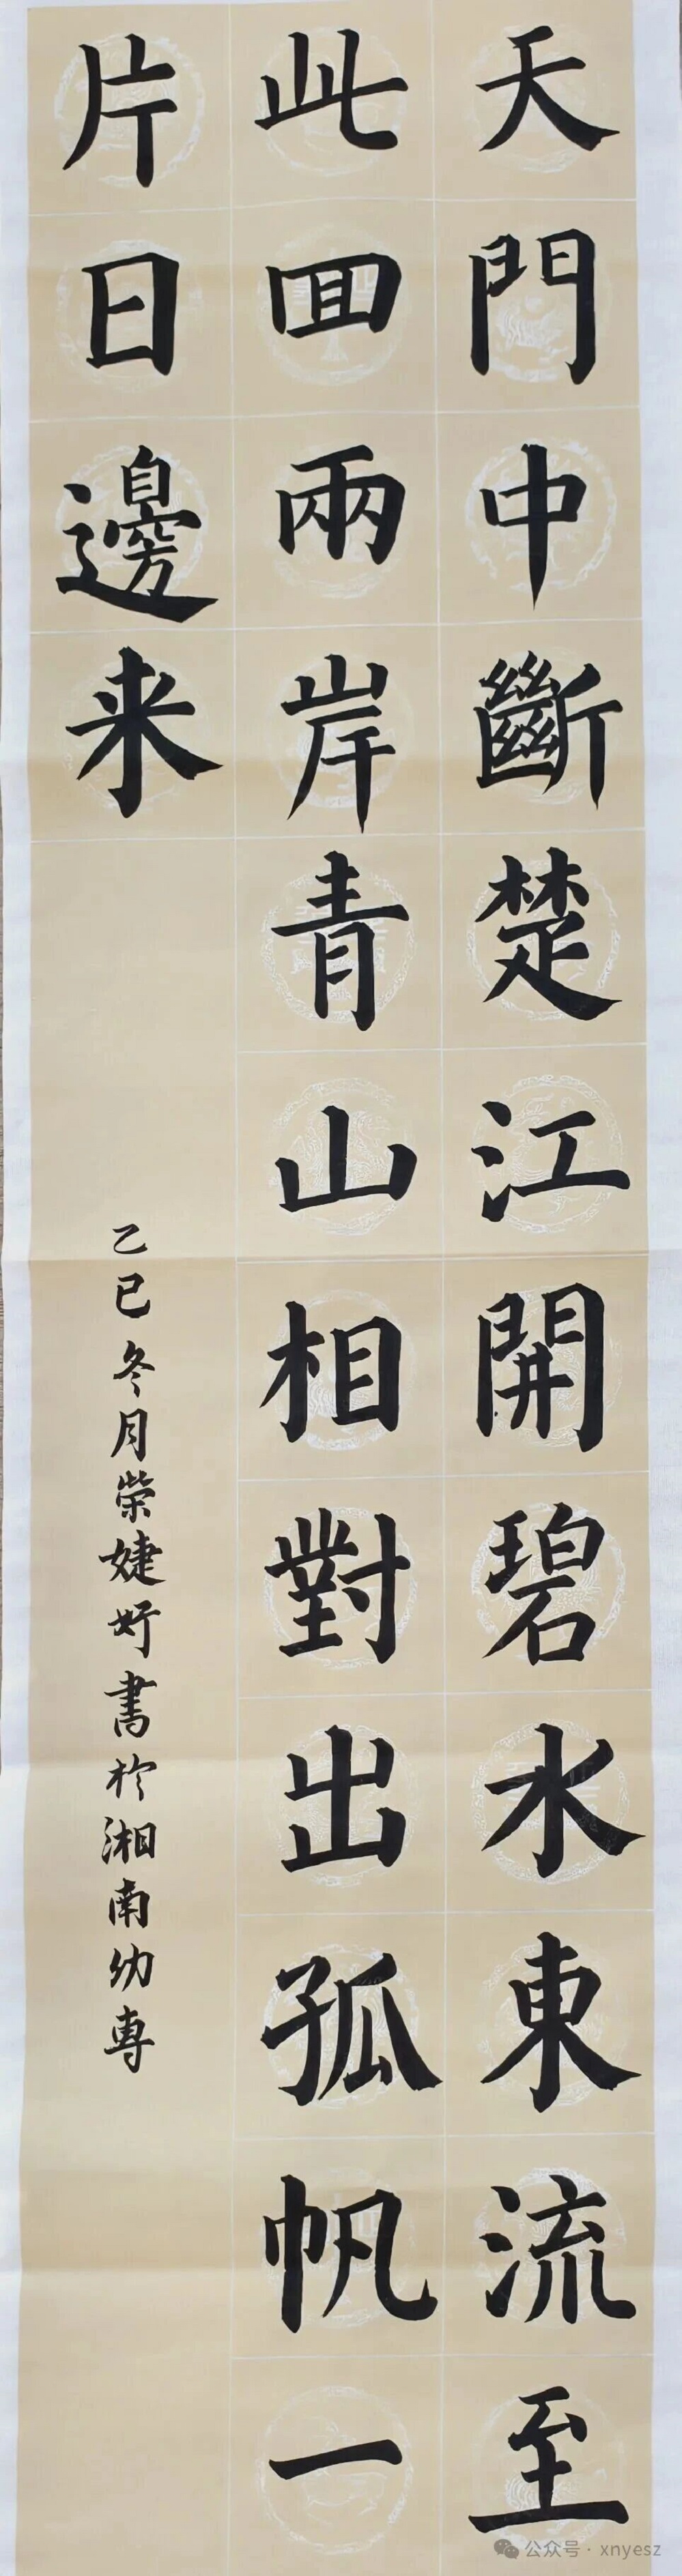 天門中斷楚江開碧水東流至
此回兩岸青山相對出孤帆一
片日邊来
乙巳冬月榮婕妤書於湘南幼專
公众号·xnyesz